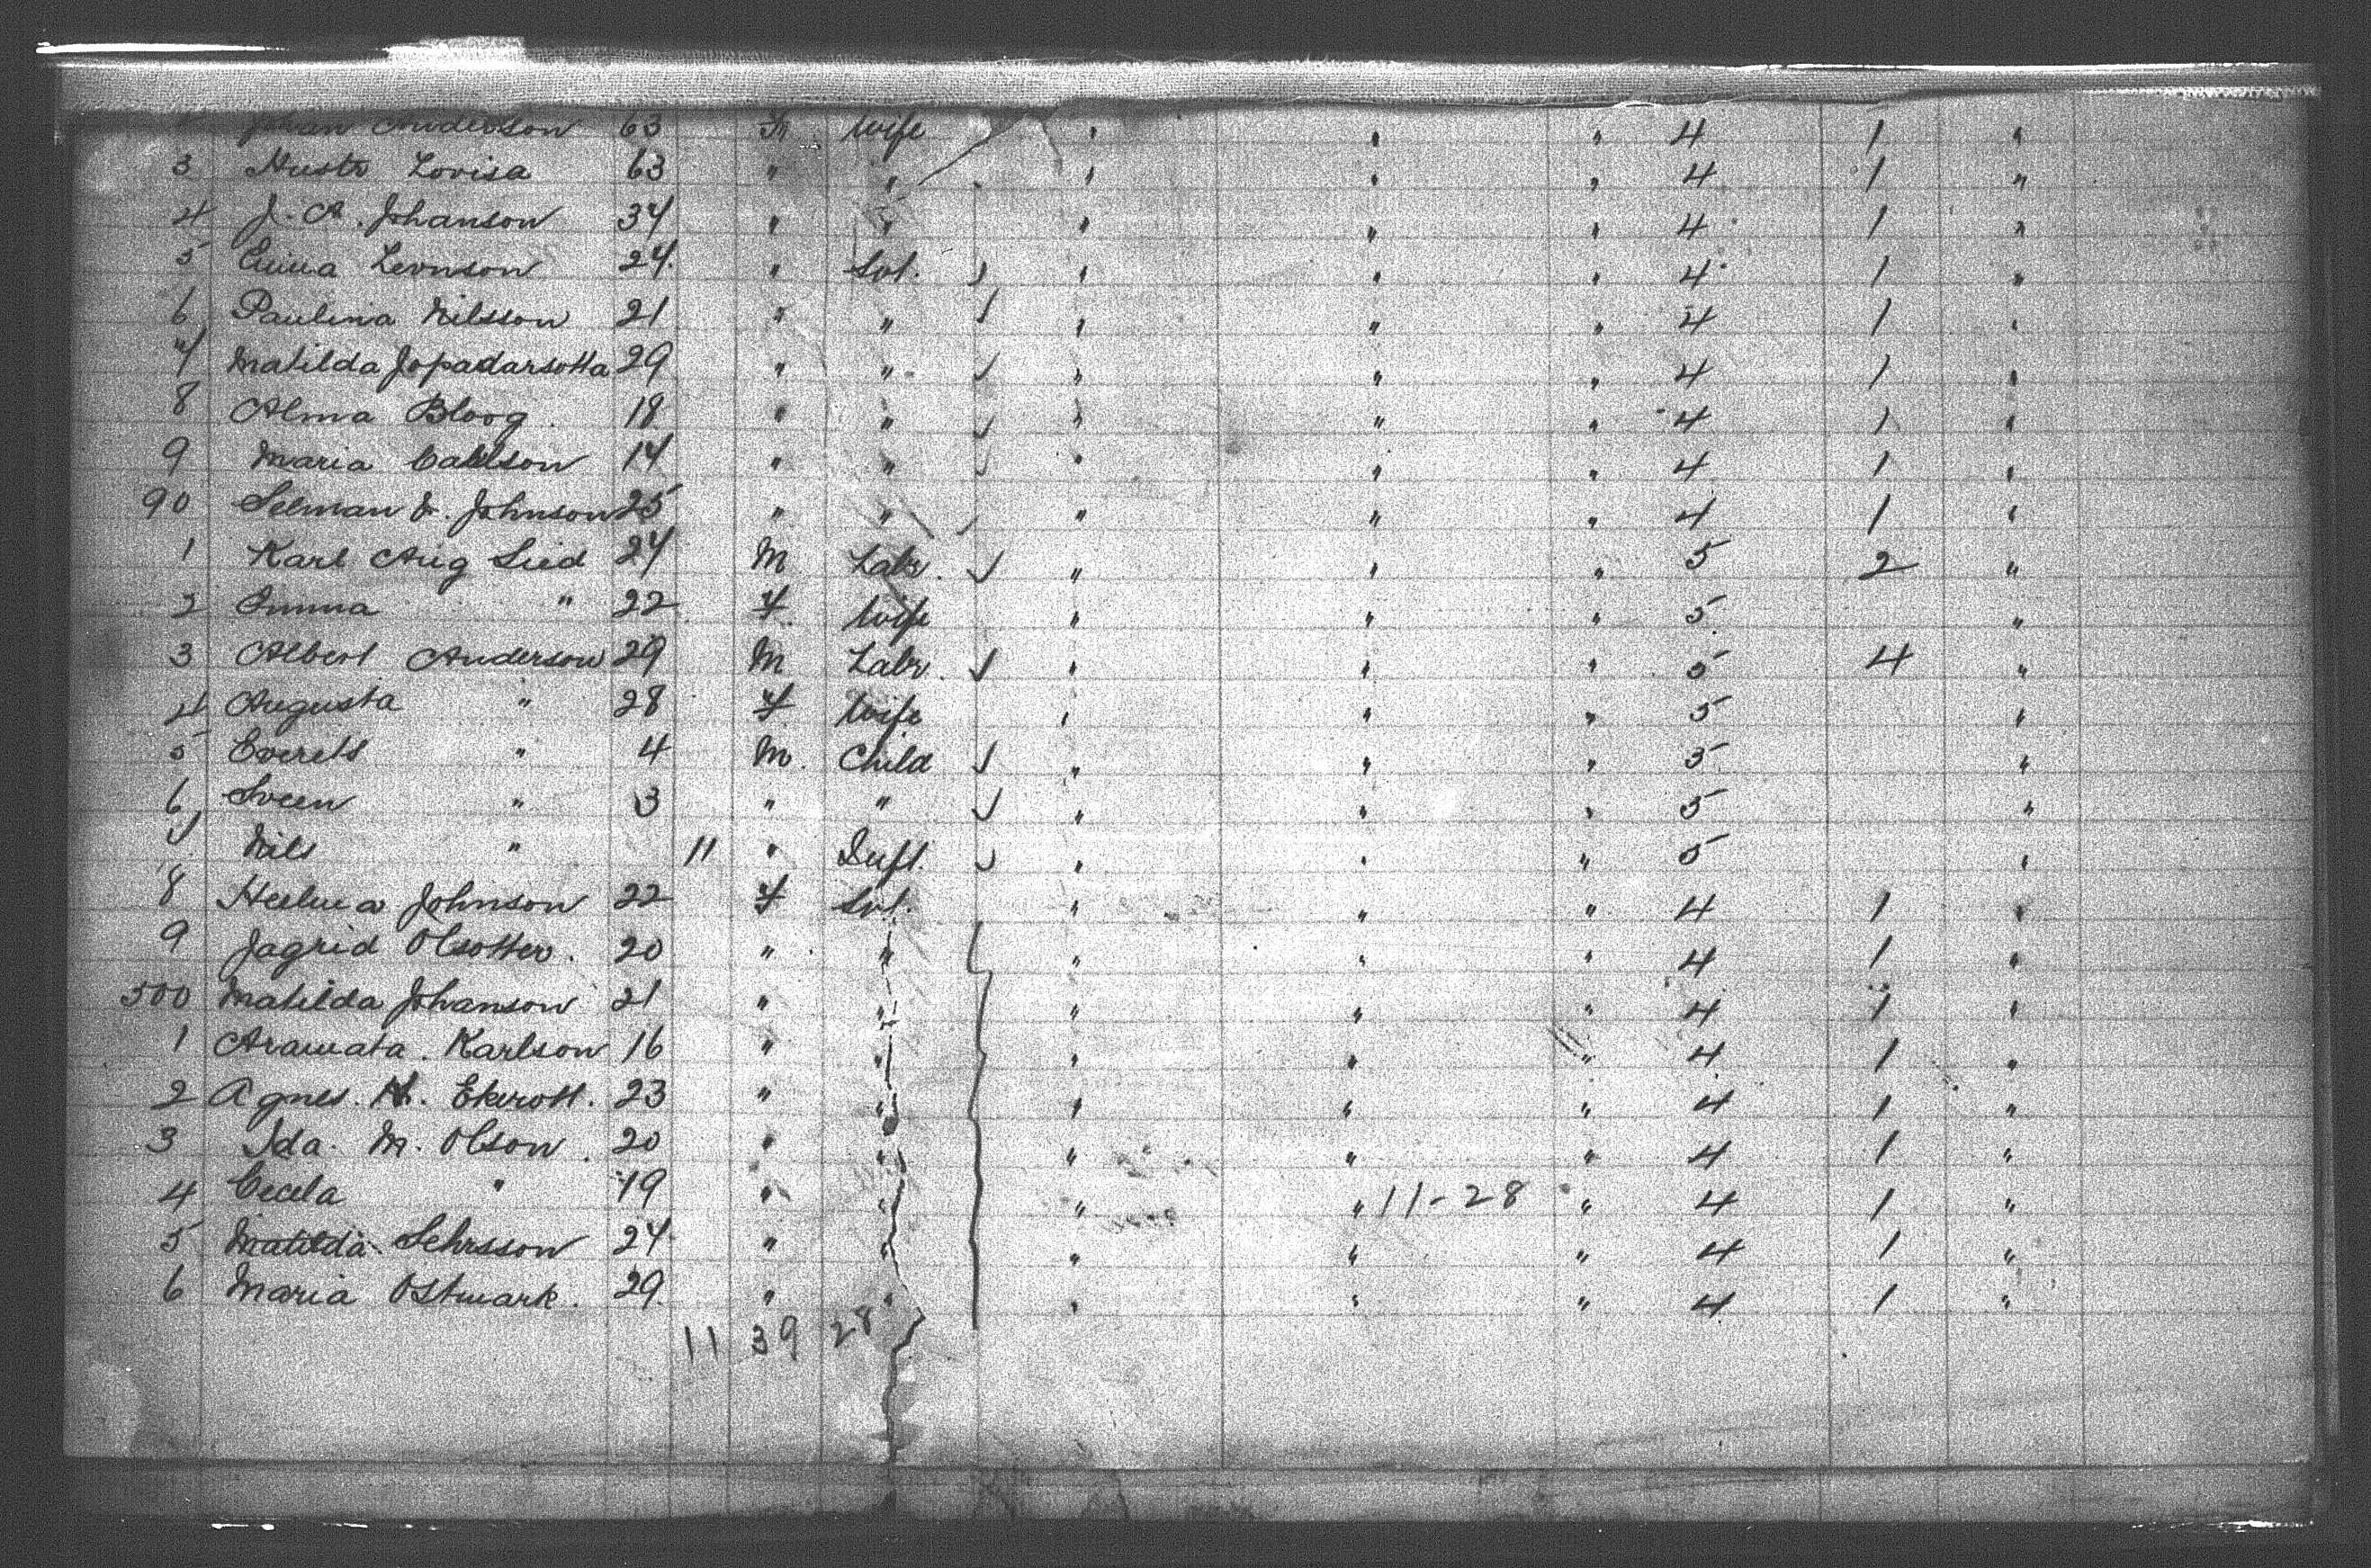 Johan Anderson 63 F. Wife " " " 4 1 "
3 Hustr Lovisa 63 " " " " " 4 1 "
4 J. A. Johanson 34 " " " " " 4 1 "
5 Emma Levnson 24 " Svt. " " " 4 1 "
6 Paulina Nilsson 21 " " " " " 4 1 "
7 Matilda Jopadarsotta 29 " " " " " 4 1 "
8 Alma Bloog 18 " " " " " 4 1 "
9 Maria Carlson 14 " " " " " 4 1 "
90 Selman V. Johnson 25 " " " " " 4 1 "
1 Karl Aug Lied 24 M Labr. " " " 5 2 "
2 Emma " 22 F. Wife " " " 5 "
3 Albert Anderson 29 M Labr. " " " 5 4 "
4 Augusta " 28 F Wife " " " 5 "
5 Everets " 4 M. Child " " " 5 "
6 Sveen " 3 " " " " " 5 "
7 Nils " 11 " Inft. " " " 5 "
8 Helma Johnson 22 F Svt. " " " 4 1 "
9 Jagrid Olsotter. 20 " " " " " 4 1 "
500 Matilda Johanson 21 " " " " " 4 1 "
1 Aramata. Karlson 16 " " " " " 4 1 "
2 Agnes. H. Ekerott. 23 " " " " " 4 1 "
3 Ida. M. Olson. 20 " " " " " 4 1 "
4 Cecela " 19 " " " " 11-28 " 4 1 "
5 Matilda Sehrsson 24 " " " " " 4 1 "
6 Maria Ostmark. 29 " " " " " 4 1 "
11 39 28